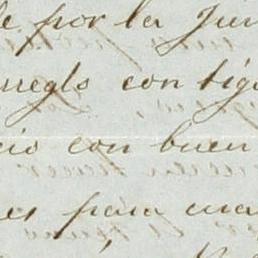 de por la Jun
rreglo con tigo
cio con buen
es para una